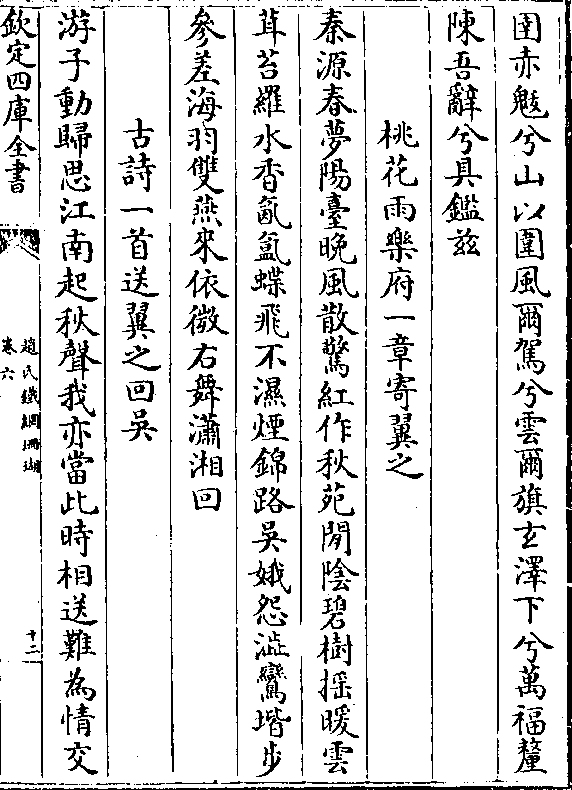 圉赤魃兮山以圍風爾駕兮雲爾旗玄澤下兮萬福釐
陳吾辭兮具鑑兹
桃花雨樂府一章寄翼之
秦源春夢陽臺晚風散驚紅作秋苑閒陰碧樹揺暖雲
茸苔羅水香氤氲蝶飛不濕煙錦路吳娥怨澁鸞堦步
參差海羽雙燕來依微右舞瀟湘回
古詩一首送翼之回吳
游子動歸思江南起秋聲我亦當此時相送難為情交
欽定四庫全書
趙氏鐵網珊瑚
卷六
十二